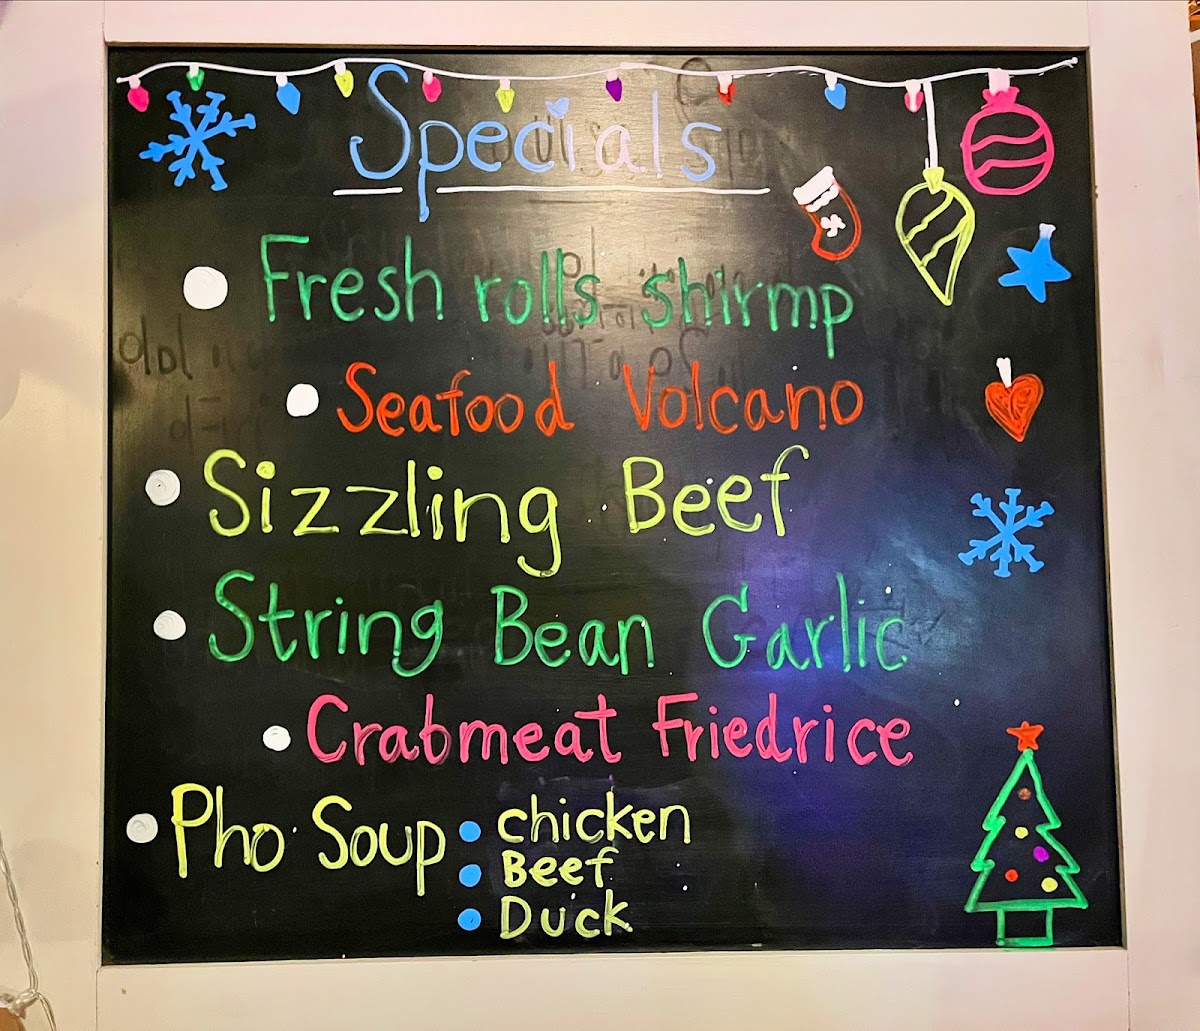 Specials
Fresh rolls shirmp
Seafood Volcano
Sizzling Beef
String Bean Garlic
Crabmeat Friedrice
Pho Soup
chicken
Beef
Duck